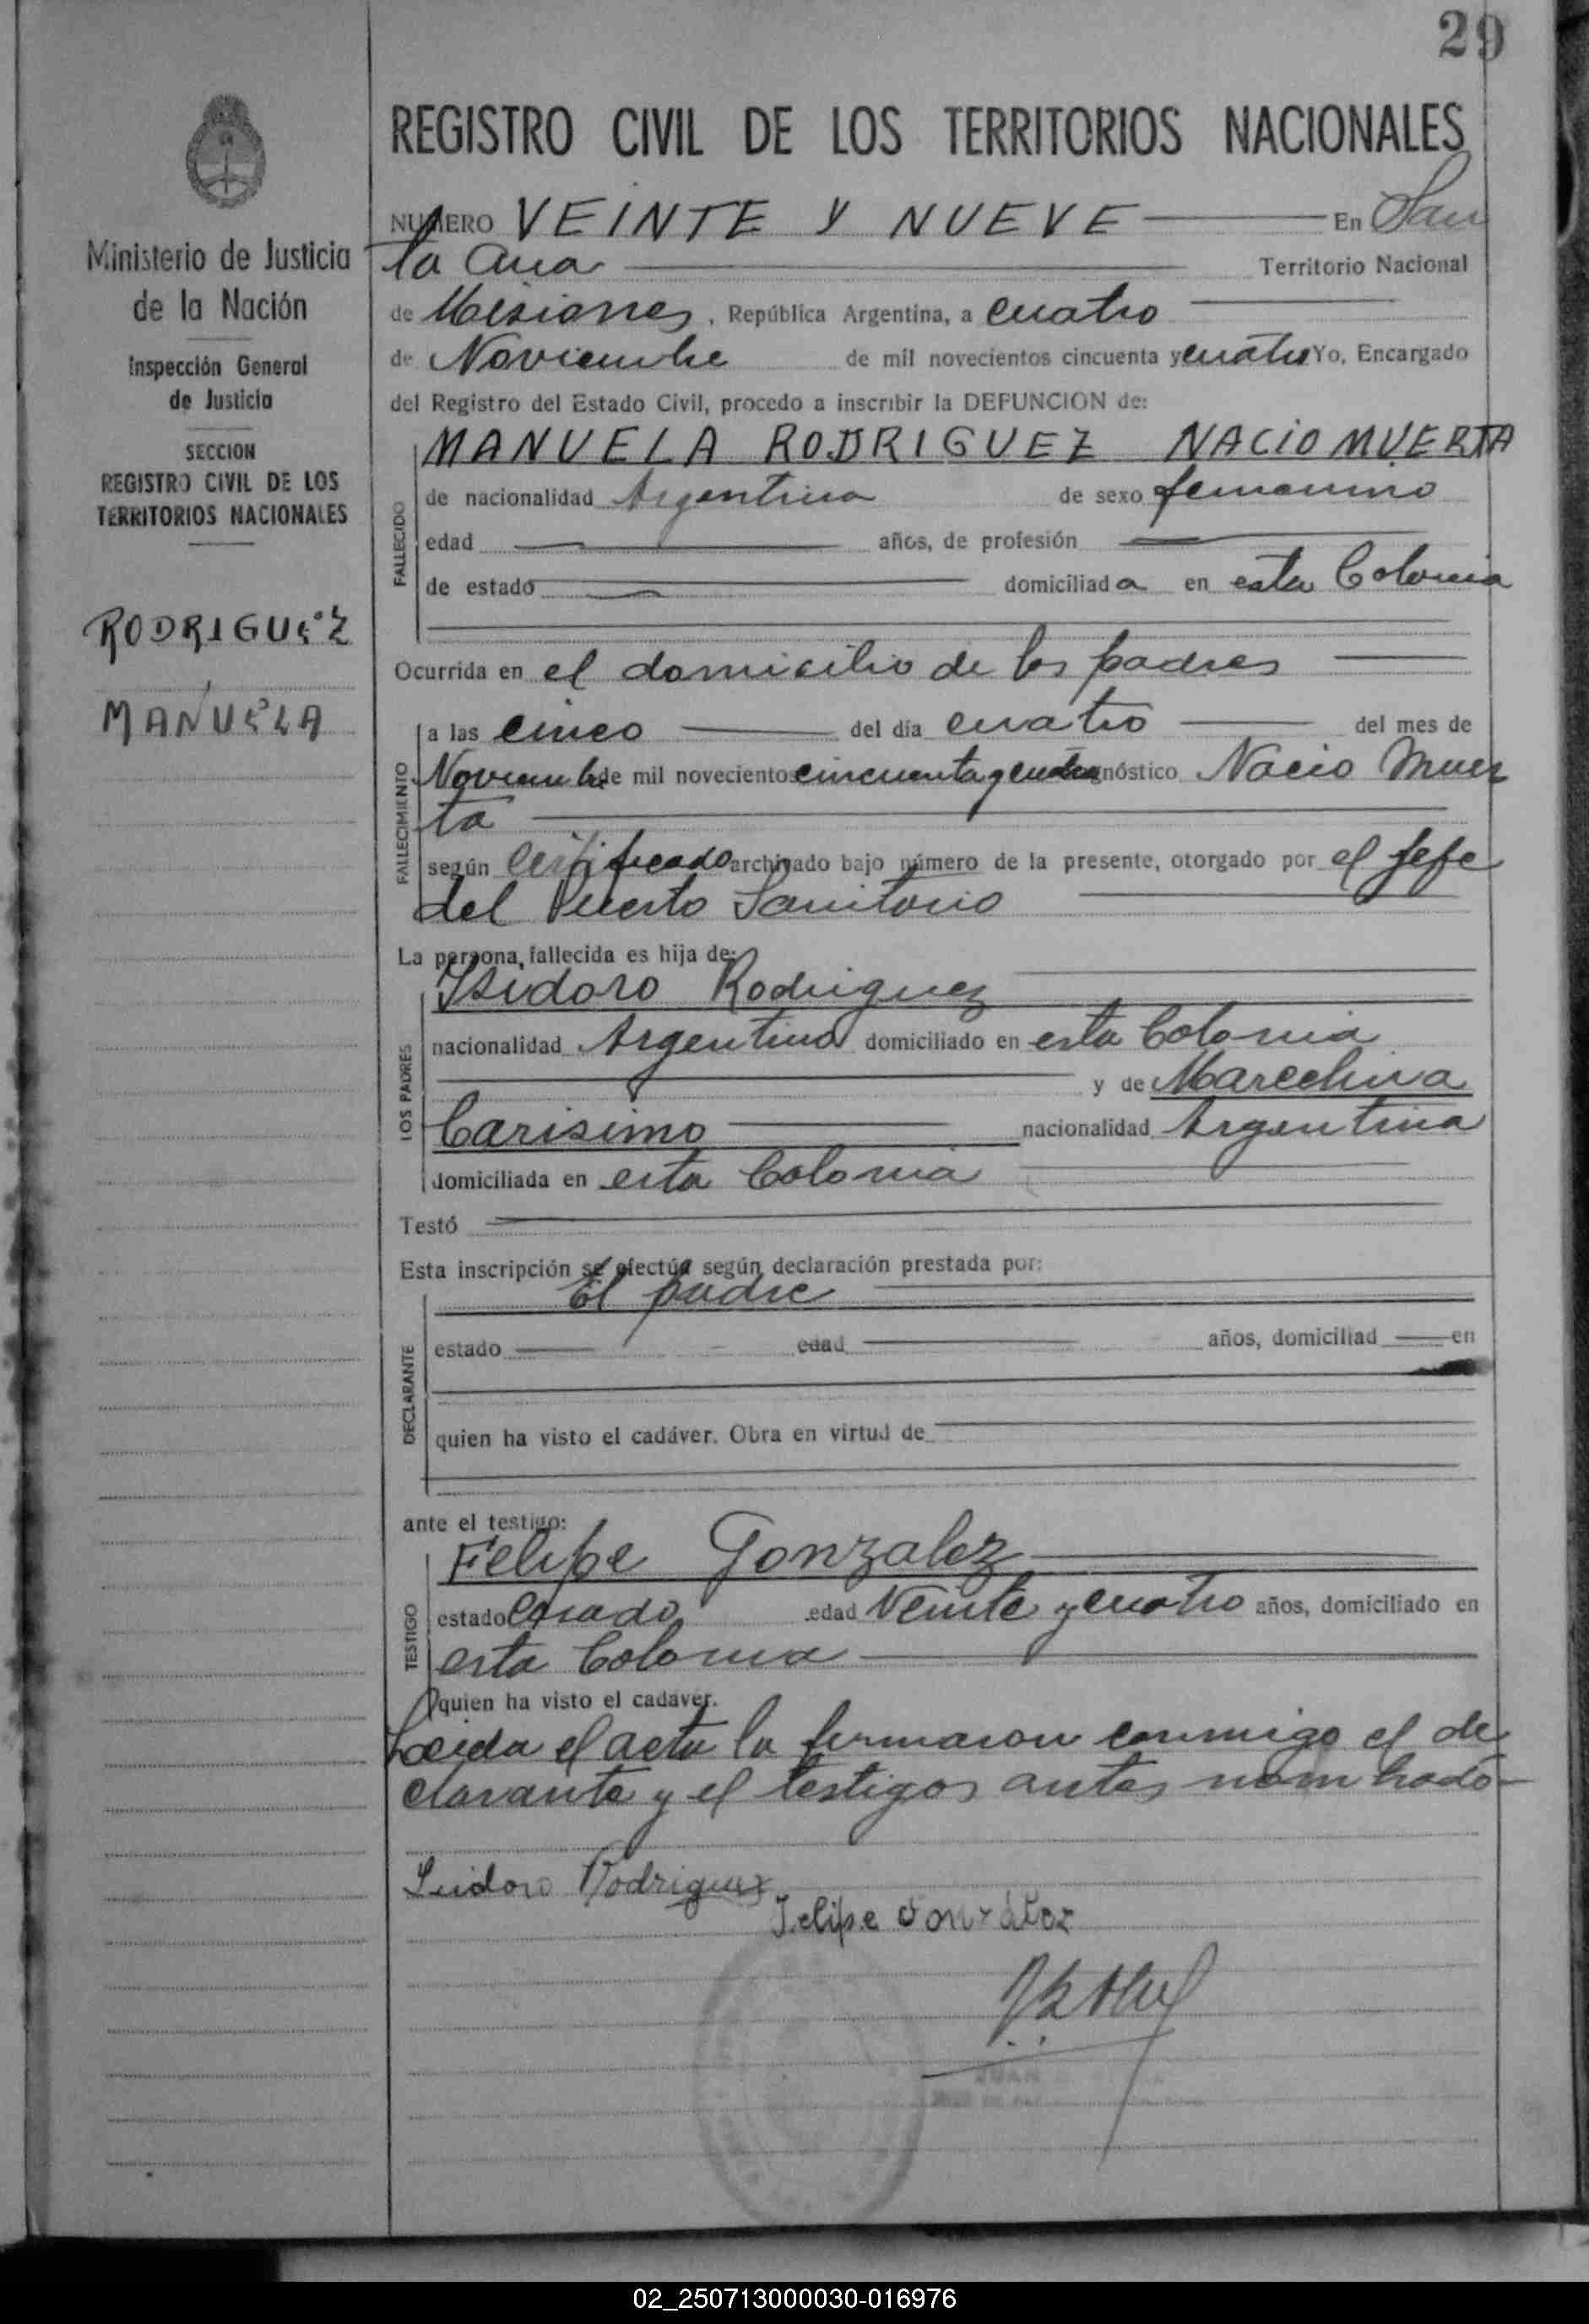 29
REGISTRO CIVIL DE LOS TERRITORIOS NACIONALES
Ministerio de Justicia
de la Nación
Inspección General
de Justicia
SECCION
REGISTRO CIVIL DE LOS
TERRITORIOS NACIONALES
RODRIGUEZ
MANUELA
NUMERO VEINTE Y NUEVE En San
ta Ana Territorio Nacional
de Misiones, República Argentina, a cuatro
de Noviembre de mil novecientos cincuenta y cuatro Yo, Encargado
del Registro del Estado Civil, procedo a inscribir la DEFUNCION de:
FALLECIDO
MANUELA RODRIGUEZ NACIO MUERTA
de nacionalidad Argentina de sexo femenino
edad años, de profesión
de estado domiciliada en esta Colonia
Ocurrida en el domicilio de los padres
FALLECIMIENTO
a las cinco del día cuatro del mes de
Noviembre de mil novecientos cincuenta y cuatro diagnóstico Nacio Muer
ta
según Certificado archivado bajo número de la presente, otorgado por el Jefe
del Puesto Sanitario
La persona fallecida es hija de:
LOS PADRES
Isidoro Rodriguez
nacionalidad Argentina domiciliado en esta Colonia
y de Marcelina
Carisimo nacionalidad Argentina
domiciliada en esta Colonia
Testó
Esta inscripción se efectúa según declaración prestada por:
DECLARANTE
El padre
estado edad años, domiciliad en
quien ha visto el cadáver. Obra en virtud de
ante el testigo:
TESTIGO
Felipe Gonzalez
estado Casado edad Veinte y cuatro años, domiciliado en
esta Colonia
quien ha visto el cadáver.
Leida el acta la firmaron conmigo el de
clarante y el testigos antes nombrado
Isidoro Rodriguez
Felipe Gonzalez
JUAN
02_250713000030-016976